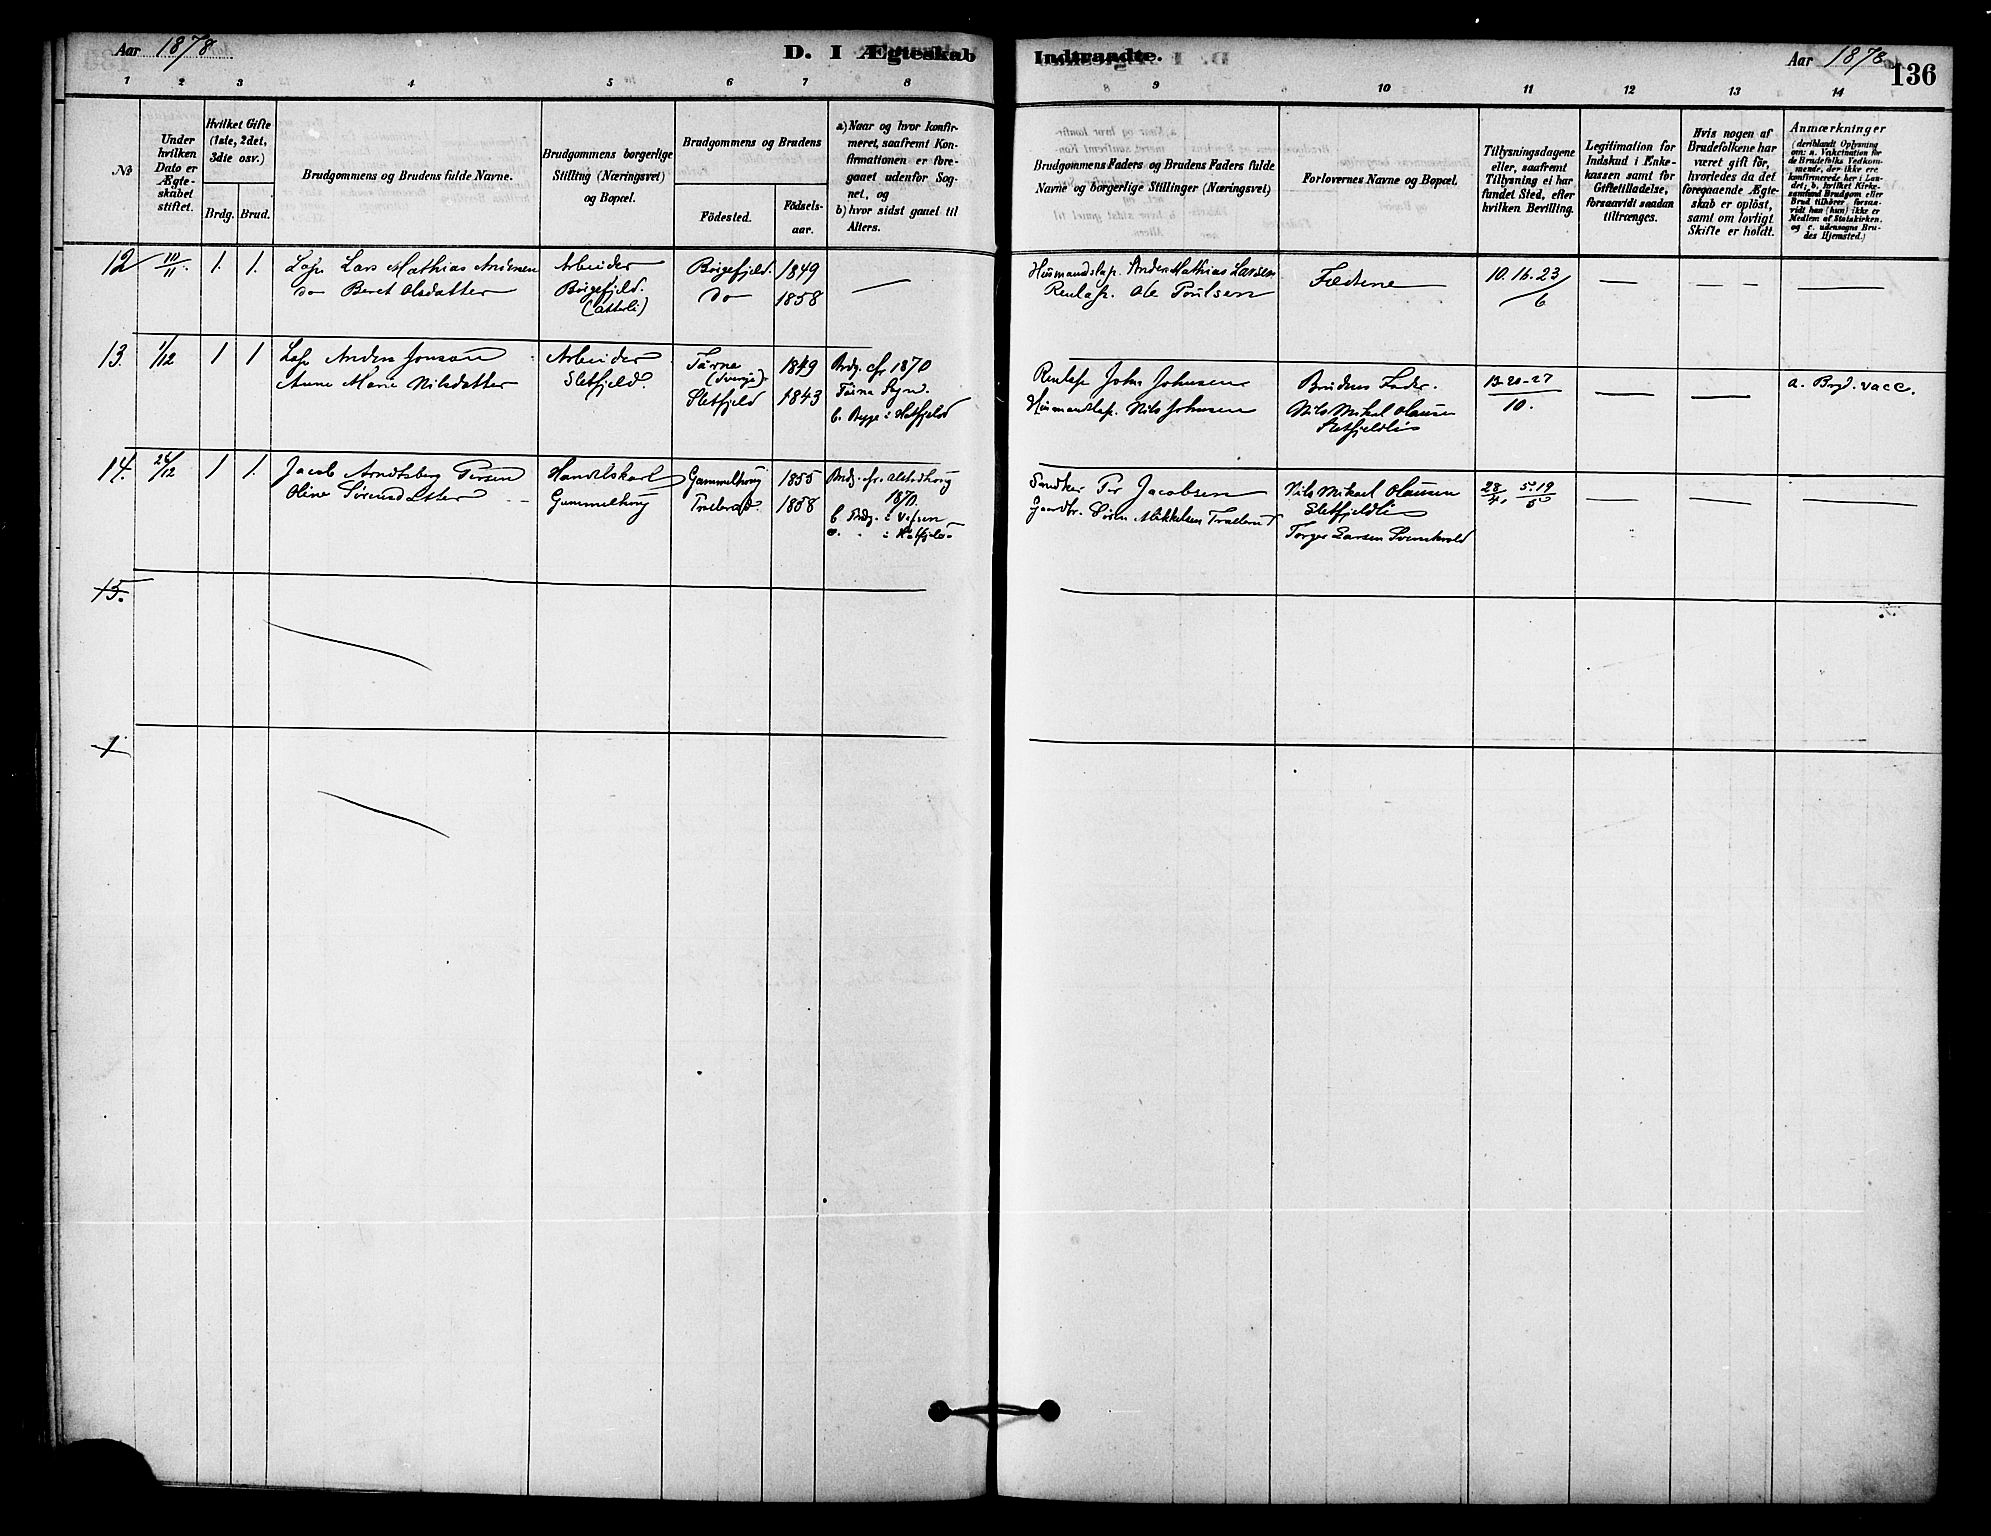 Aar 1878
D. I Ægteskab
Indtraadte.
Aar 1878
136
1 2 3 4 5 6 7 8
9 10 11 12 13 14
No
Under hvilken Dato er Ægteskabet stiftet.
Hvilket Gifte (1ste, 2det, 3die osv.)
Brdg. Brud.
Brudgommens og Brudens fulde Navne.
Brudgommens borgerlige Stilling (Næringsvei) og Bopæl.
Brudgommens og Brudens
Födested.
Födsels-aar.
a) Naar og hvor konfirmeret, saafremt Konfirmationen er foregaaet udenfor Sognet, og
b) hvor sidst gaaet til Alters.
Brudgommens Faders og Brudens Faders fulde Navne og borgerlige Stillinger (Næringsvei)
Forlovernes Navne og Bopæl.
Tillysningsdagene eller, saafremt Tillysning ei har fundet Sted, efter hvilken Bevilling.
Legitimation for Indskud i Enkekassen samt for Giftetilladelse, forsaavidt saadan tiltrænges.
Hvis nogen af Brudefolkene har været gift för, hvorledes da det foregaaende Ægteskab er oplöst, samt om lovligt Skifte er holdt.
Anmærkninger (deriblandt Oplysning om: a. Vakcination for de Brudefolks Vedkommende, der ikke ere konfirmerede her i Landet; b, hvilket Kirkesamfund Brudgom eller Brud tilhörer, forsaavidt han (hun) ikke er Medlem af Statskirken, og c. udensogns Brudes Hjemsted.)
12 10/11. 1. 1. Lap Lars Mathias Andersen Arbeider Börgefjeld. 1849 — Husmandslap. Anders Mathias Larsen Fædrene 10. 16. 23/6 — — — —
do Beret Olsdatter Börgefjeld. do 1858 Renlap. Ole Poulsen
13. 1/12 1 1 Lap Anders Jonsen Arbeider Tärna 1849 Brdg. cfr 1870 Renlap John Johnsen Brudens Fader. 13-20-27/10. — — a. Brgd. vacc.
Anne Marie Nilsdatter Sletfjeld. (Sverige). Tärna Sogn.
Sletfjeld 1843 Husmandslap. Nils Johnsen Nils Mikal Olausen
Sletfjeldli
14. 26/12 1 1. Jacob Arndtsberg Persen Handelskarl Gammelhoug 1855 Per Jacobsen Nils Mikael Olausen 28/4. 5. 19/5 — — —
Oline Sørensdatter Gammelhoug 1858 1870. Gaardbr. Sören Mikkelsen Sletfjeldli
b. Brdg. i Vefsen Torger Larsen
15.
1